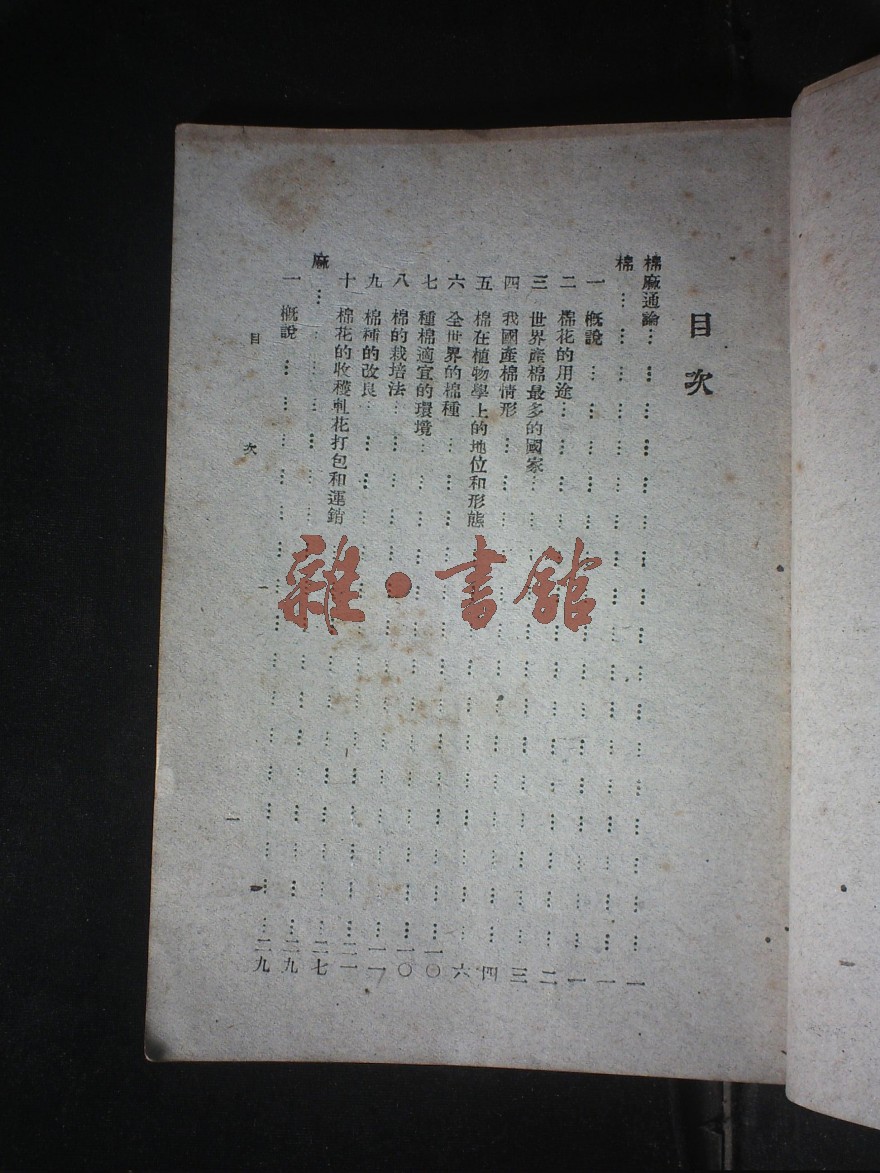 目次
棉麻通論………一
棉………一
一 概說………一
二 棉花的用途………二
三 世界產棉最多的國家………三
四 我國產棉情形………四
五 棉在植物學上的地位和形態………六
六 全世界的棉種………一〇
七 種棉適宜的環境………一〇
八 棉的栽培法………一一
九 棉種的改良………二一
十 棉花的收穫軋花打包和運銷………二七
麻………二九
一 概說………二九
目 次 一
雜·書館